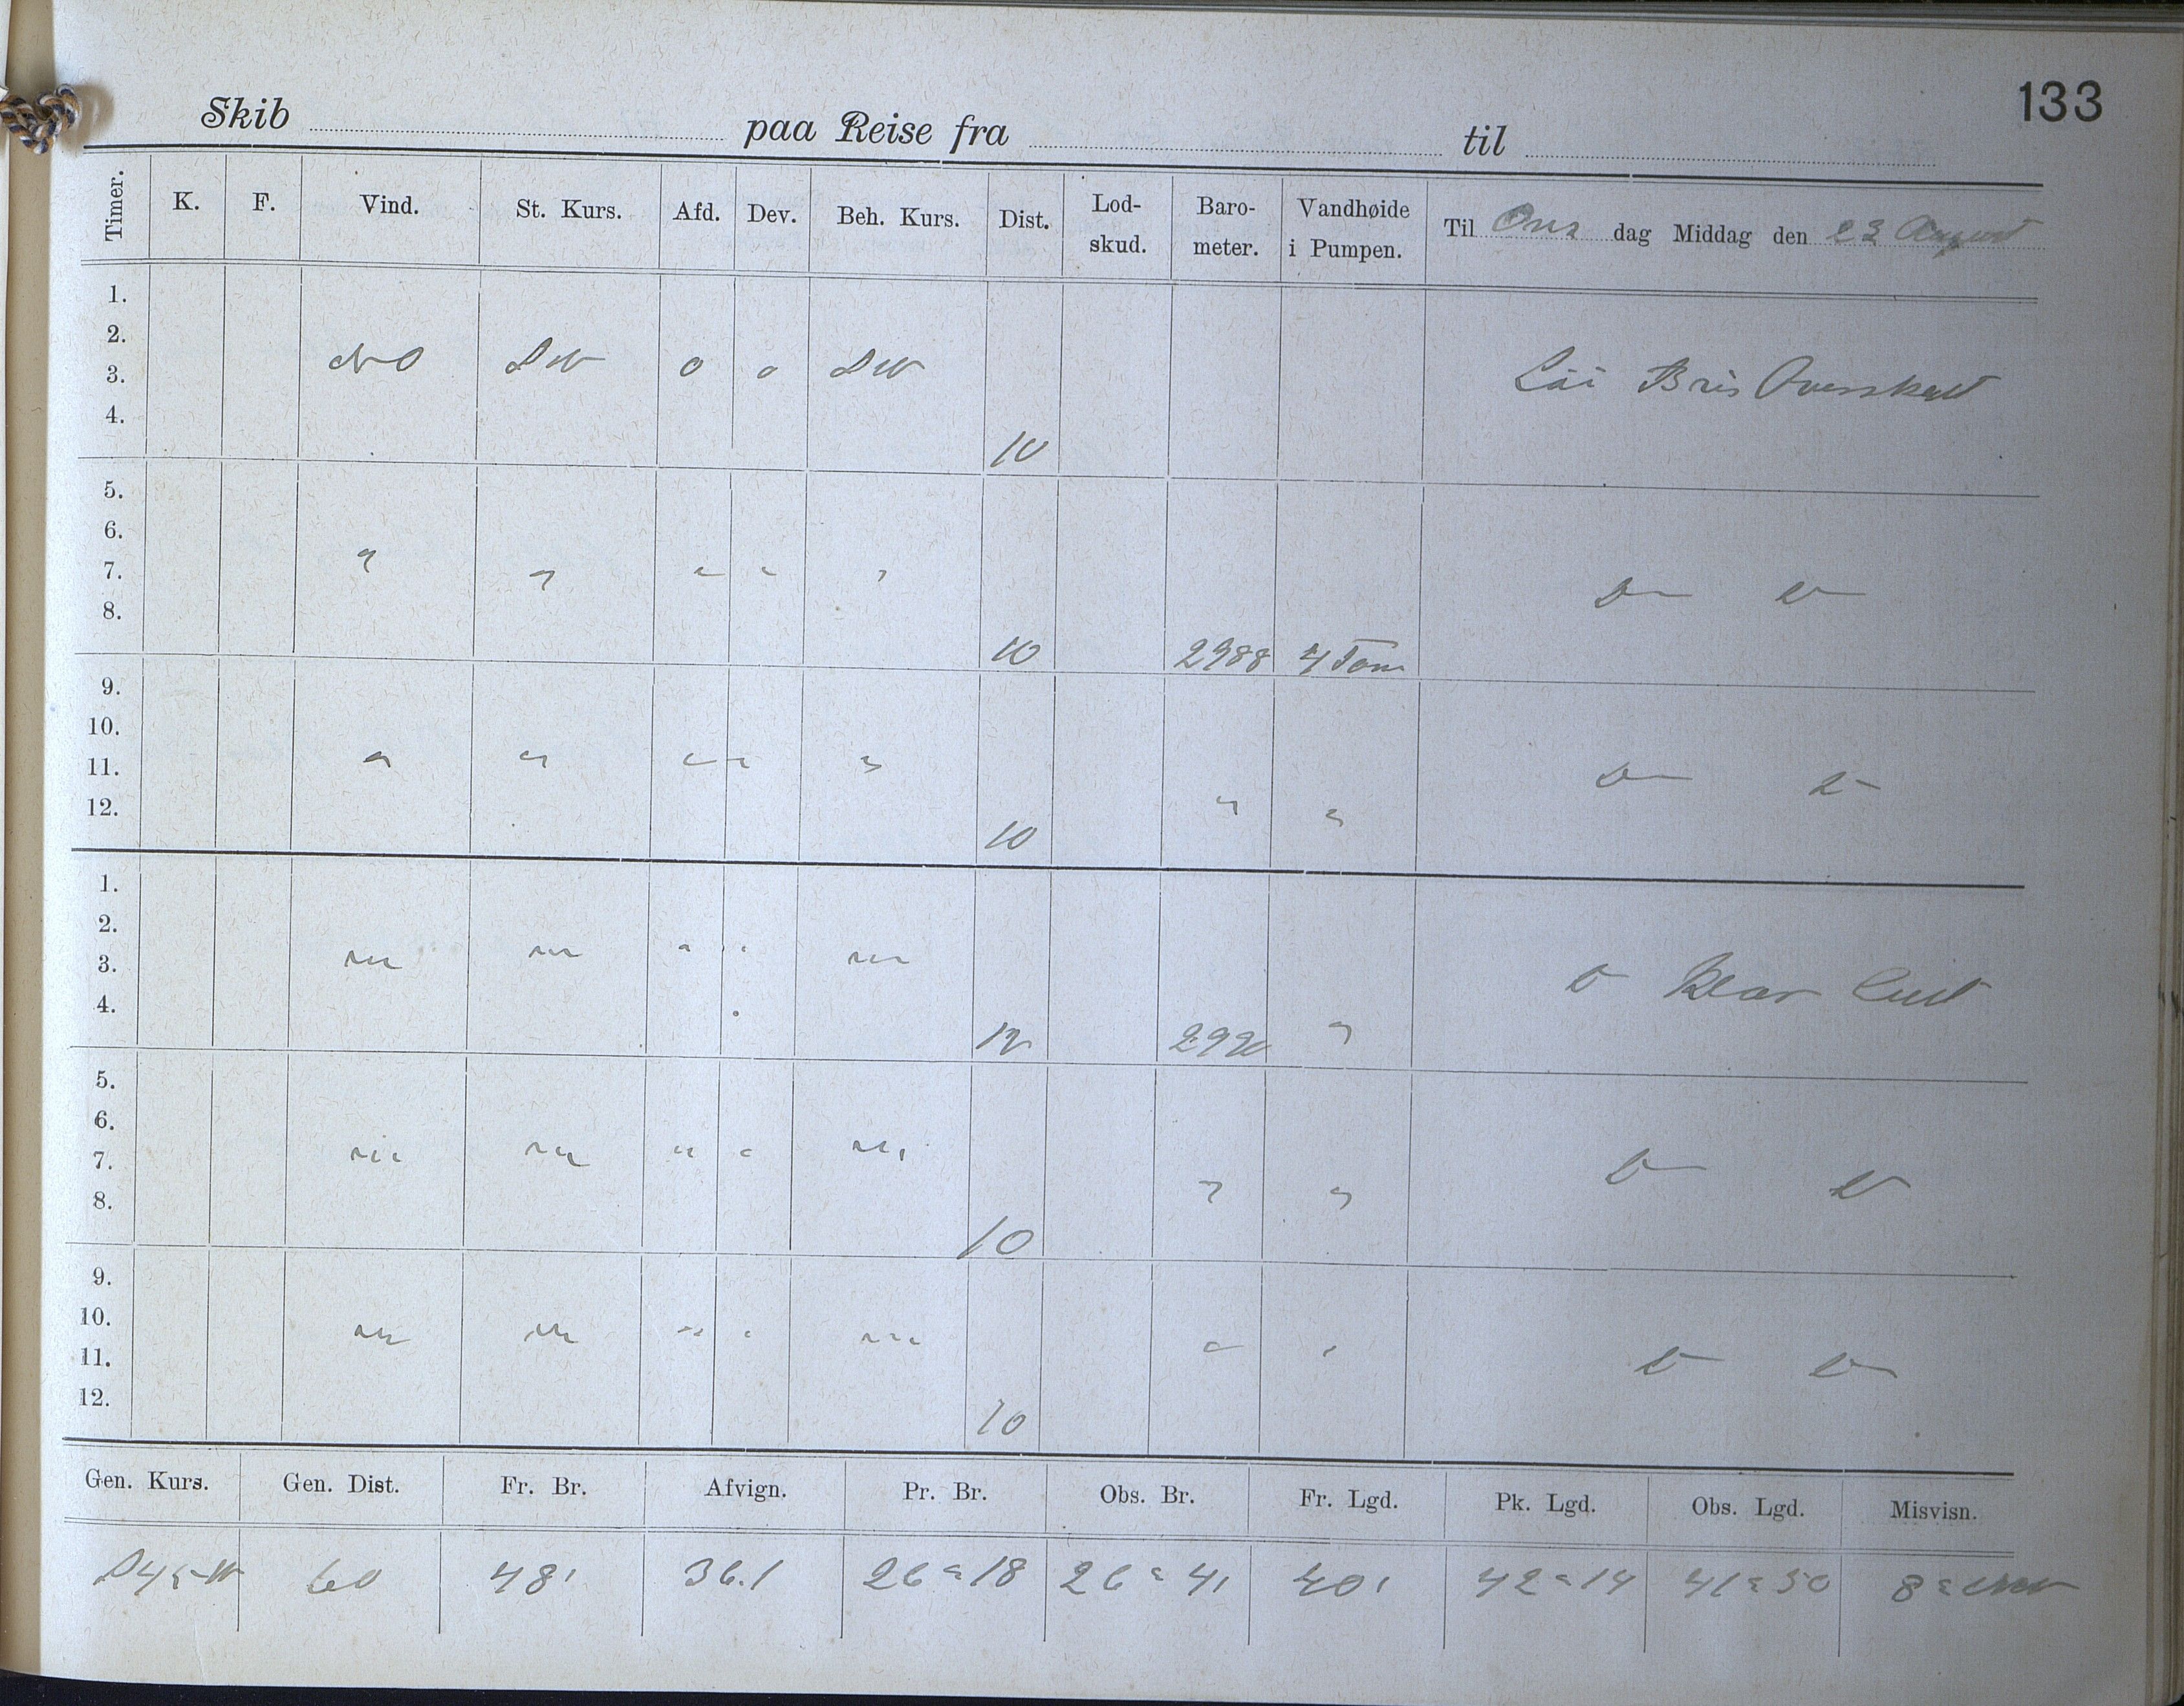 133
Skib paa Reise fra til
Timer. K. F. Vind. St. Kurs. Afd. Dev. Beh. Kurs. Dist. Lod-skud. Baro-meter. Vandhøide i Pumpen. Til Ons dag Middag den 23 August
1.
2.
3. NO SW 0 0 SW Bris Overskyet
4. 10
5.
6.
7. " " " " " D D
8. 10 2988 4 Tom
9.
10.
11. " " " " " D D
12. 10 " "
1.
2.
3. " " " " " D Klar Luft
4. 12 2990 "
5.
6.
7. " " " " " D D
8. 10 " "
9.
10.
11. " " " " " " " D D
12. 10
Gen. Kurs. Gen. Dist. Fr. Br. Afvign. Pr. Br. Obs. Br. Fr. Lgd. Pk. Lgd. Obs. Lgd. Misvisn.
S45W 60 48' 36.1 26 " 18 26 " 41 40' 42 " 14 41 " 50